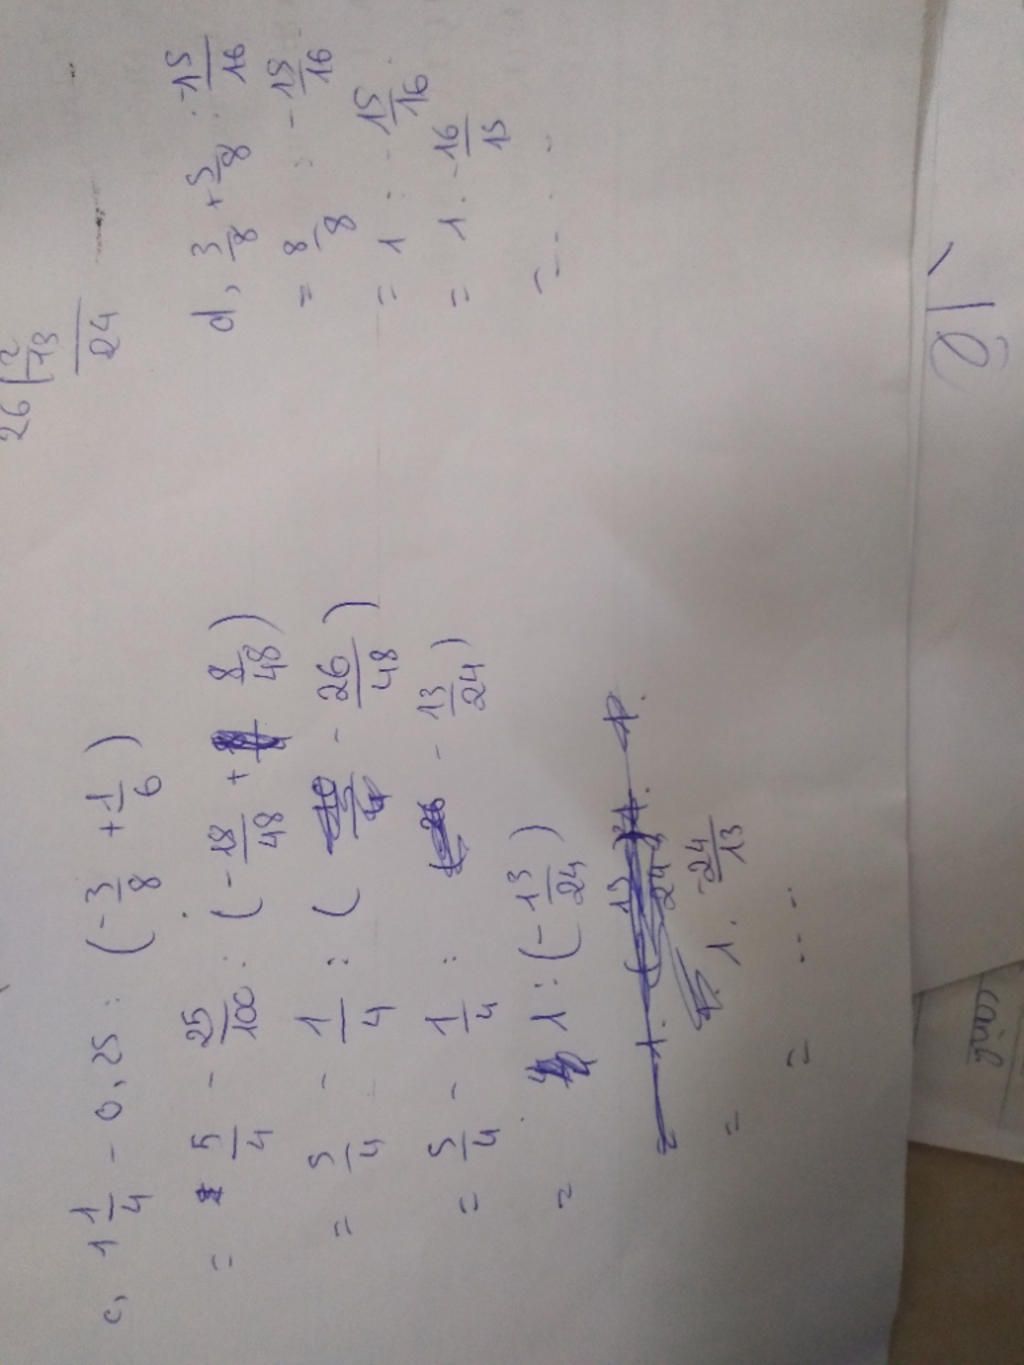 c, 1 1/4 - 0,25 : (-3/8 + 1/6)
= 5/4 - 25/100 : (-18/48 + 8/48)
= 5/4 - 1/4 : ( - 26/48 )
= 5/4 - 1/4 : - 13/24 )
= 1 : (-13/24)
= 1. -24/13
= ...
24
d, 3/8 + 5/8 : -15/16
= 8/8 : -15/16
= 1 : -15/16
= 1. -16/15
= ...